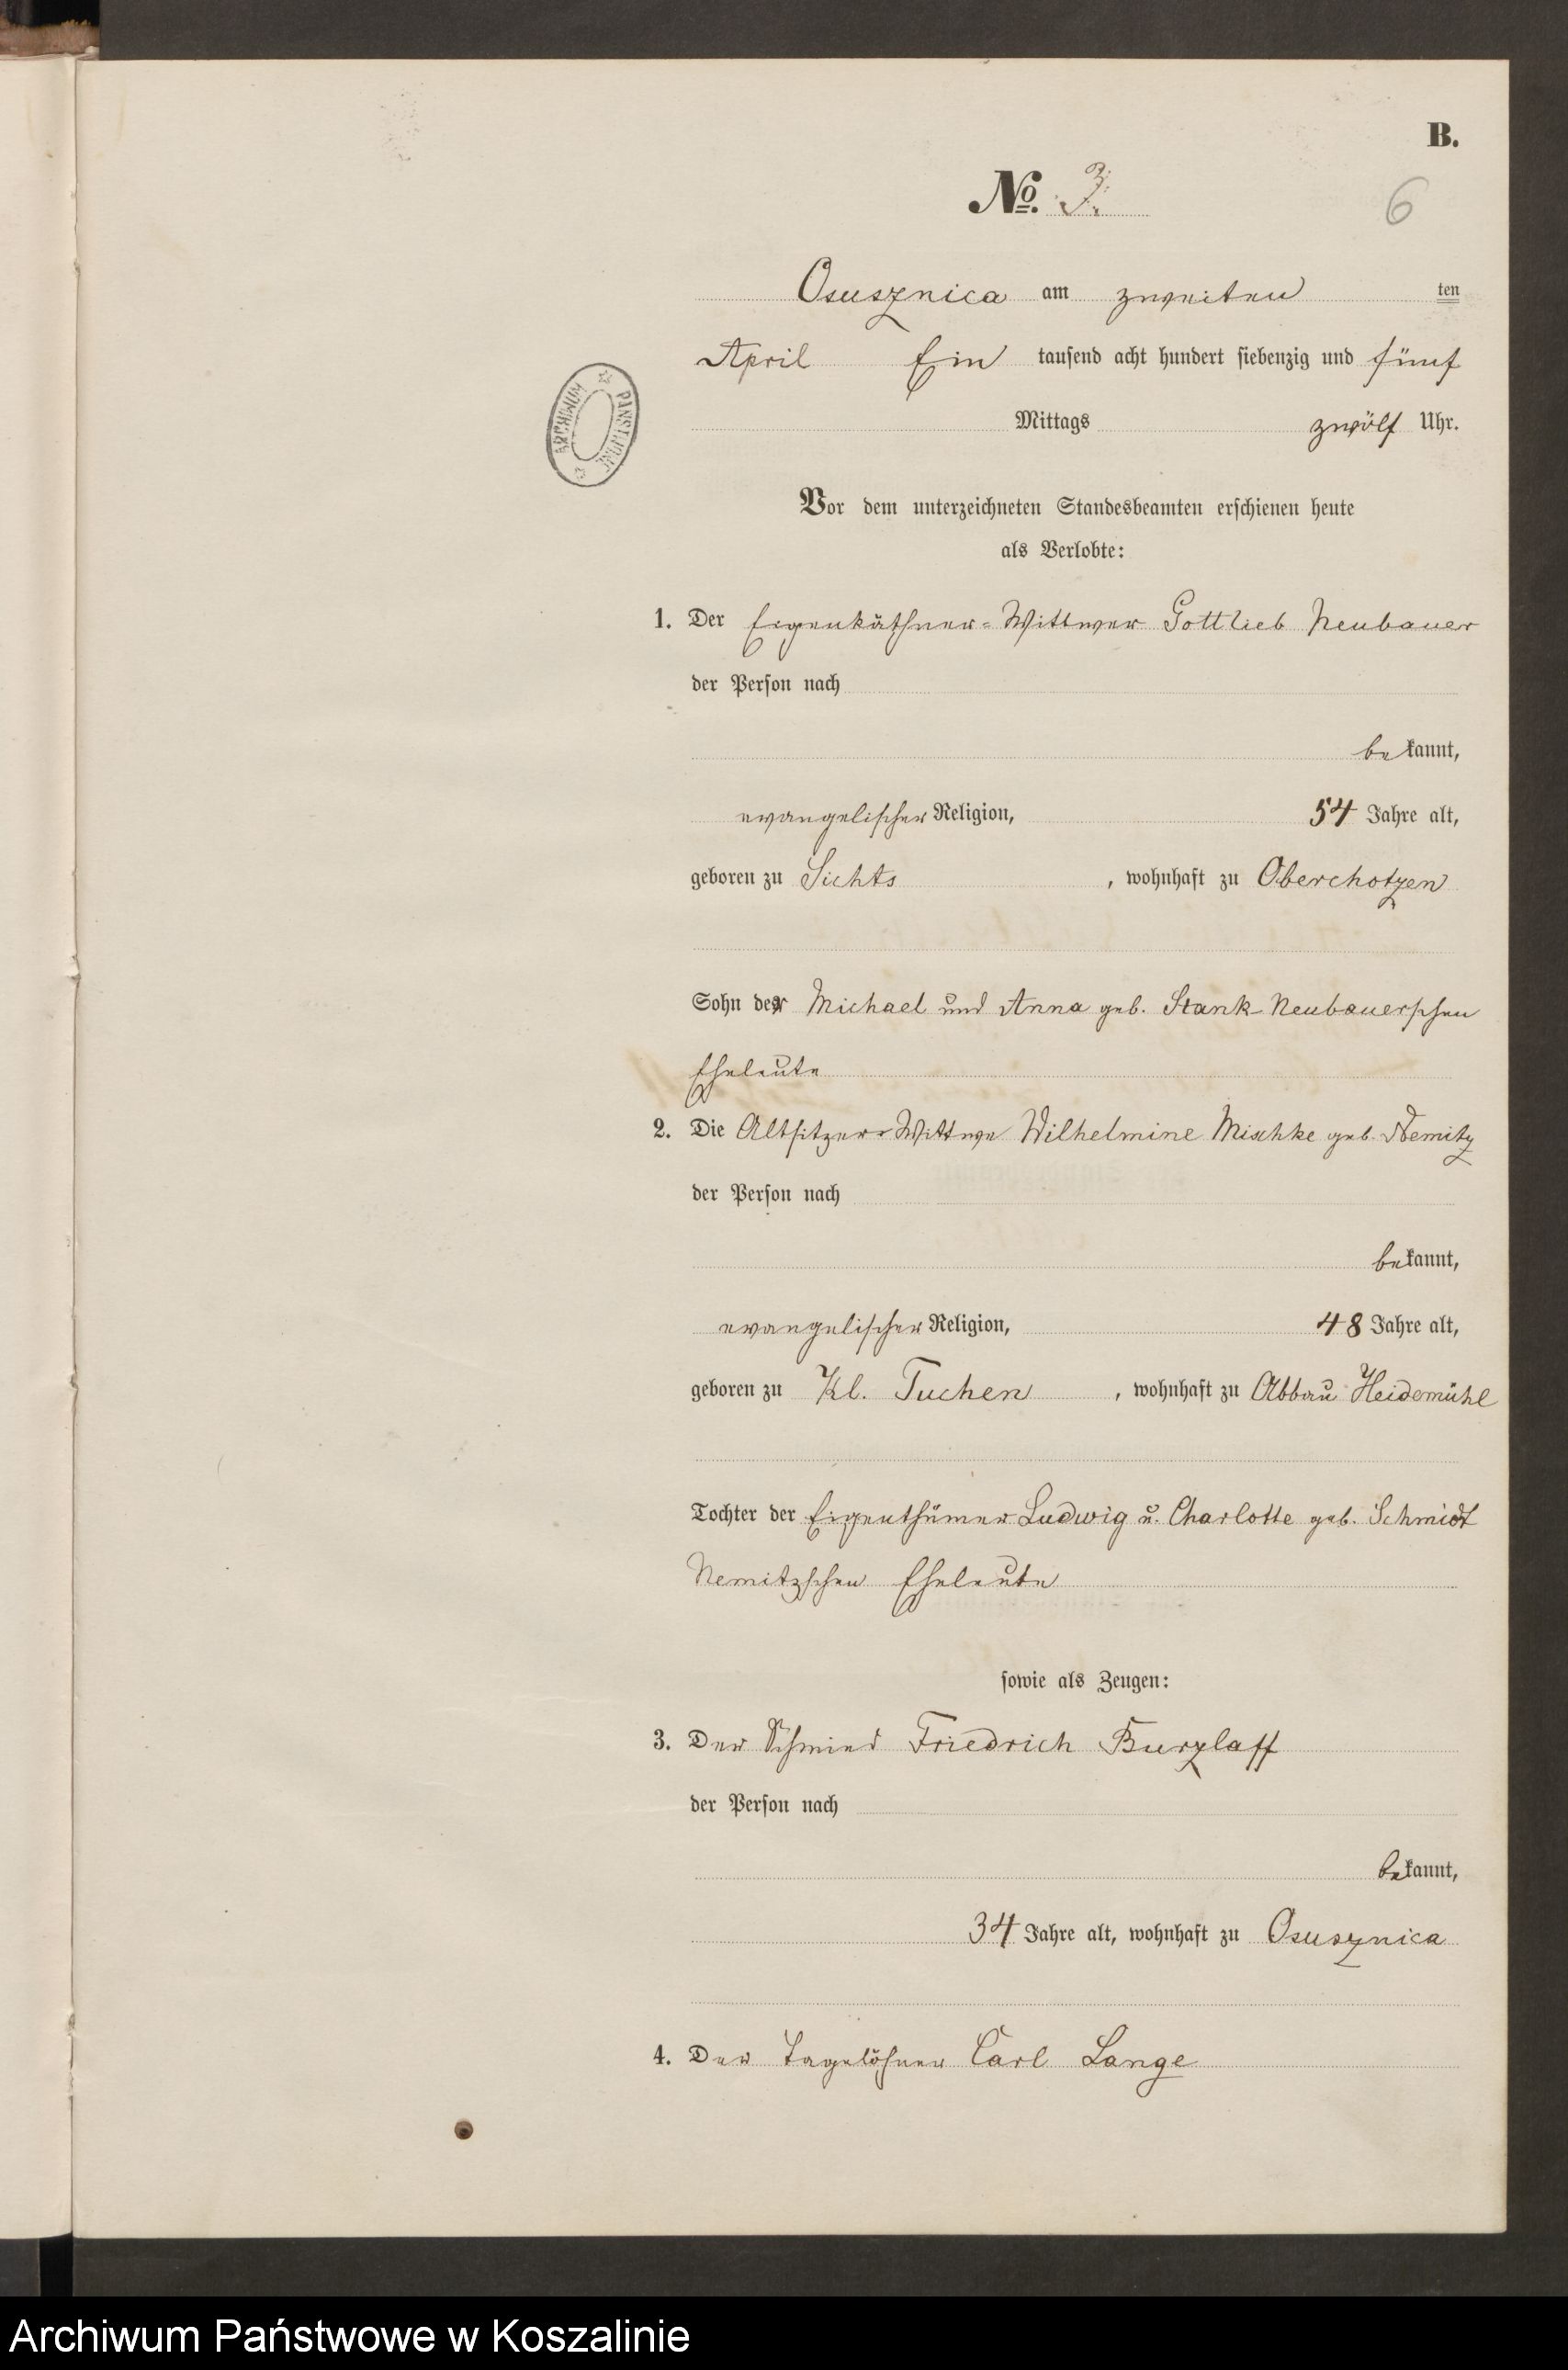 B.
No. 3.
6
Osusznica am zweiten ten
April Ein tausend acht hundert siebenzig und fünf
Mittags zwölf Uhr.
ARCHIWUM
Vor dem unterzeichneten Standesbeamten erschienen heute
als Verlobte:
1. Der Eigenkäthner-Wittwer Gottlieb Neubauer
der Person nach
bekannt,
evangelischer Religion, 54 Jahre alt,
geboren zu Sichts, wohnhaft zu Oberchotzen
Sohn der Michael und Anna geb. Stank Neubauerschen
Eheleute
2. Die Altsitzer-Wittwe Wilhelmine Mischke geb. Nemitz
der Person nach
bekannt,
evangelischer Religion, 48 Jahre alt,
geboren zu Kl. Tuchen, wohnhaft zu Abbau Heidemühl
Tochter der Eigenthümer Ludwig u. Charlotte geb. Schmidt
Nemitzschen Eheleute
sowie als Zeugen:
3. Der Schmied Friedrich Burzlaff
der Person nach
bekannt,
34 Jahre alt, wohnhaft zu Osusznica
4. Der Tagelöhner Carl Lange
Archiwum Państwowe w Koszalinie